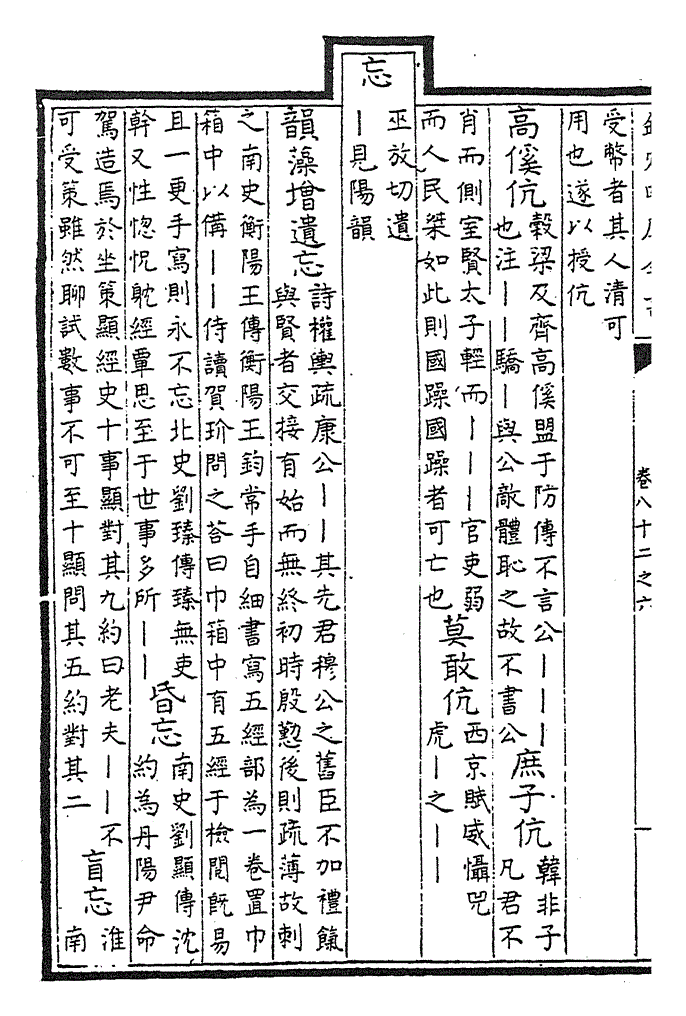 卷八十二之六
受幣者其人清可
用也遂以授伉
高傒伉
穀梁及齊高傒盟于防傳不言公｜｜｜
也注｜｜驕｜與公敵體恥之故不書公
庶子伉
韓非子
凡君不
肖而側室賢太子輕而｜｜｜官吏弱
而人民桀如此則國躁國躁者可亡也
莫敢伉
西京賦威懾兕
虎｜之｜｜
忘
巫放切遺
｜見陽韻
韻藻增遺忘
詩權輿疏康公｜｜其先君穆公之舊臣不加禮餼
與賢者交接有始而無終初時殷懃後則疏薄故刺
之南史衡陽王傳衡陽王鈞常手自細書寫五經部為一卷置巾
箱中以備｜｜侍讀賀玠問之荅曰巾箱中有五經于檢閱既易
且一更手寫則永不忘北史劉臻傳臻無吏
幹又性惚怳躭經覃思至于世事多所｜｜
昏忘
南史劉顯傳沈
約為丹陽尹命
駕造焉於坐策顯經史十事顯對其九約曰老夫｜｜不
可受策雖然聊試數事不可至十顯問其五約對其二
盲忘
淮
南